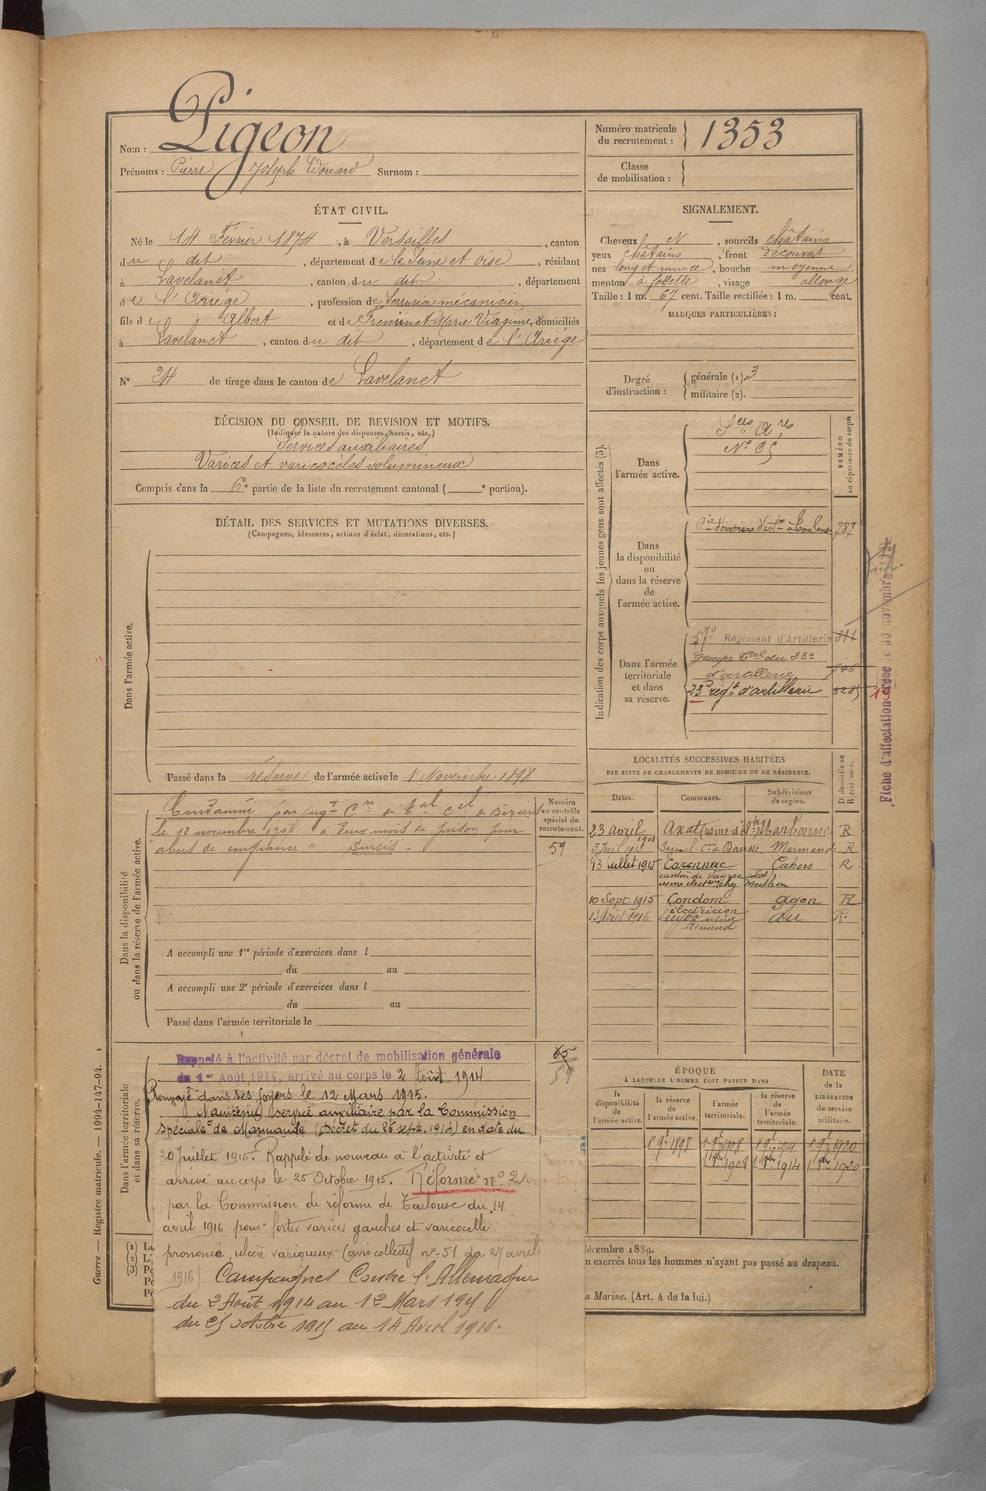 Nom : Pigeon
Prénoms : Pierre Joseph Edouard Surnom :
Numéro matricule du recrutement : 1353
Classe de mobilisation :
ÉTAT CIVIL.
Né le 14 Février 1874, à Versailles, canton
du dit, département de la Seine et Oise, résidant
à Lavelanet, canton du dit, département
de l'Ariège, profession de Serrurier mécanicien
fils de Albert et de Freminet Marie Virginie, domiciliés
à Lavelanet, canton du dit, département de l'Ariège
N° 24 de tirage dans le canton de Lavelanet
SIGNALEMENT.
Cheveux N, sourcils châtains
yeux châtains, front découvert
nez long et mince, bouche moyenne
menton à fossette, visage allongé
Taille : 1 m. 67 cent. Taille rectifiée : 1 m. cent.
MARQUES PARTICULIÈRES :
Degré d'instruction : générale (1) 3
militaire (2).
DÉCISION DU CONSEIL DE REVISION ET MOTIFS.
(Indiquer la nature des dispenses, sursis, etc.)
Services auxiliaires
Varices et varicocèles volumineux
Compris dans la 6e partie de la liste du recrutement cantonal ( e portion).
DÉTAIL DES SERVICES ET MUTATIONS DIVERSES.
(Campagnes, blessures, actions d'éclat, décorations, etc.)
Dans l'armée active.
Passé dans la réserve de l'armée active le 1 Novembre 1898
Indication des corps auxquels les jeunes gens sont affectés (3).
NUMÉRO au répertoire du corps
Dans l'armée active.
N° 35
Dans la disponibilité ou dans la réserve de l'armée active.
Cie d'ouvriers d'artie à Toulouse 787
Dans l'armée territoriale et dans sa réserve.
Régiment d'Artillerie 311
d'artillerie
23e regt d'artillerie
Fiche d'affectation créée le 30 novembre
Dans la disponibilité ou dans la réserve de l'armée active.
Numéro au contrôle spécial du recrutement.
59
Condamné par jugt
le 18 novembre à deux mois de prison pour
abus de confiance " Sursis -
A accompli une 1re période d'exercices dans l
du au
A accompli une 2e période d'exercices dans l
du au
Passé dans l'armée territoriale le
LOCALITÉS SUCCESSIVES HABITÉES
PAR SUITE DE CHANGEMENTS DE DOMICILE OU DE RÉSIDENCE.
Dates. Communes. Subdivisions de région. D domicile ou R résidence.
23 avril 1901 Axat Narbonne R
Marmande R
13 juillet 1915 Carennac Cahors R
10 Sept. 1915 Condom Agen R
13 Avril 1916 électricien du R.
Dans l'armée territoriale et dans sa réserve.
Rappelé à l'activité par décret de mobilisation générale
du 1er Août 1914, arrivé au corps le 2 Août 1914
Renvoyé dans ses foyers le 12 Mars 1915.
Maintenu service auxiliaire par la Commission
spéciale de Marmande (Décret du 26 sept. 1914) en date du
20 Juillet 1915. Rappelé de nouveau à l'activité et
arrivé au corps le 25 Octobre 1915. Réformé n° 2
par la Commission de réforme de Toulouse du 14
avril 1916 pour fortes varices gauches et varicocelle
prononcé, ulcère variqueux (avis collectif n° 51 du 27 avril
1916) Campagnes Contre l'Allemagne
du 2 Août 1914 au 12 Mars 1915
du 25 Octobre 1915 au 14 Avril 1916.
65
59
ÉPOQUE
À LAQUELLE L'HOMME DOIT PASSER DANS
la disponibilité de l'armée active. la réserve de l'armée active. l'armée territoriale. la réserve de l'armée territoriale.
DATE de la LIBÉRATION du service militaire.
décembre 1889.
n exercés tous les hommes n'ayant pas passé au drapeau.
a Marine. (Art. 4 de la loi.)
Guerre — Registre matricule. — 1994-147-94.